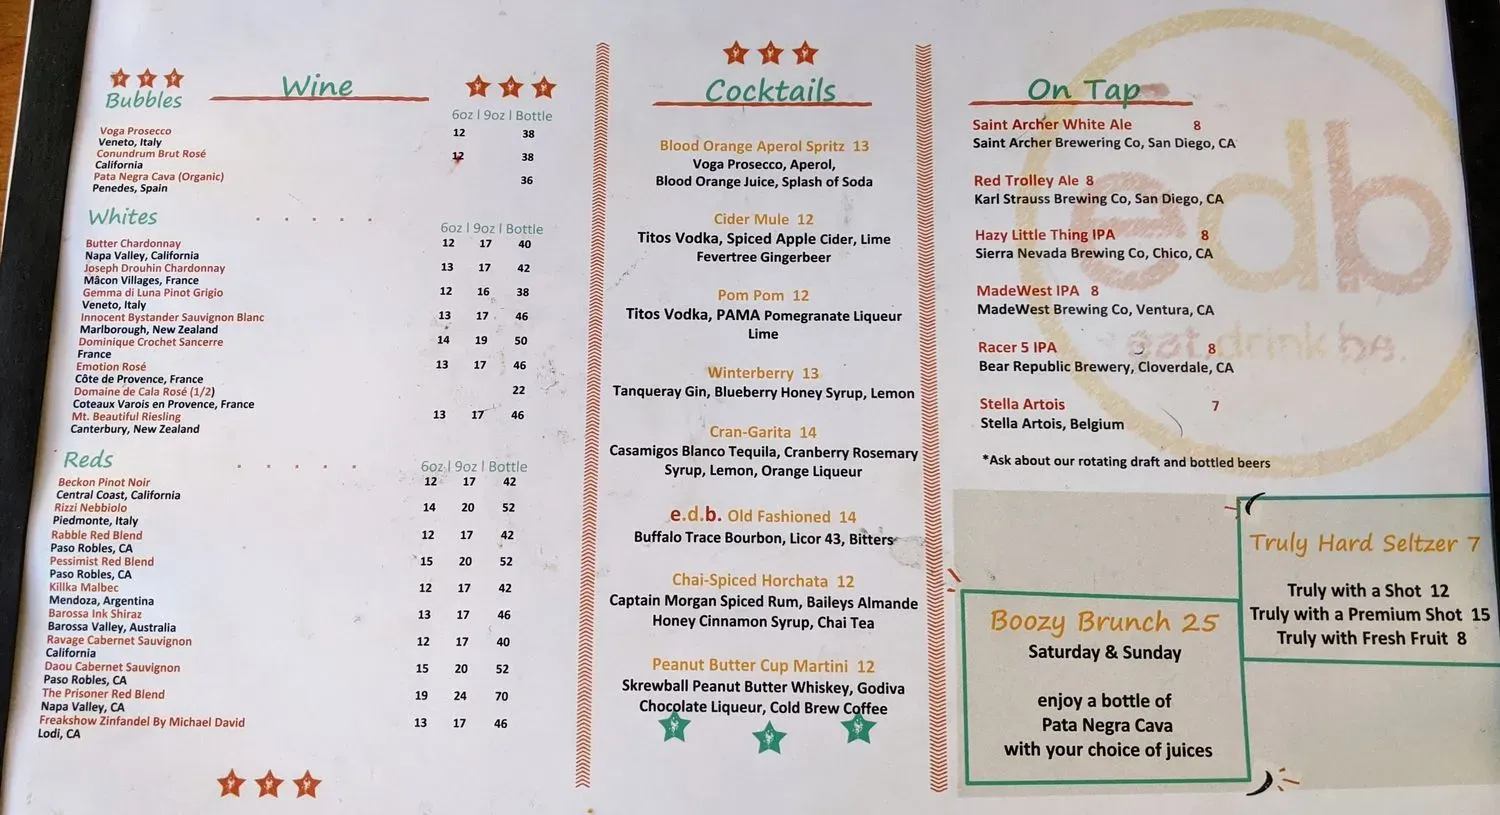 Wine
Bubbles
6oz | 9oz | Bottle
Voga Prosecco 12 38
Veneto, Italy
Conundrum Brut Rosé 12 38
California
Pata Negra Cava (Organic) 36
Penedes, Spain
Whites . . . . .
6oz | 9oz | Bottle
Butter Chardonnay 12 17 40
Napa Valley, California
Joseph Drouhin Chardonnay 13 17 42
Mâcon Villages, France
Gemma di Luna Pinot Grigio 12 16 38
Veneto, Italy
Innocent Bystander Sauvignon Blanc 13 17 46
Marlborough, New Zealand
Dominique Crochet Sancerre 14 19 50
France
Emotion Rosé 13 17 46
Côte de Provence, France
Domaine de Cala Rosé (1/2) 22
Coteaux Varois en Provence, France
Mt. Beautiful Riesling 13 17 46
Canterbury, New Zealand
Reds . . . . .
6oz | 9oz | Bottle
Beckon Pinot Noir 12 17 42
Central Coast, California
Rizzi Nebbiolo 14 20 52
Piedmonte, Italy
Rabble Red Blend 12 17 42
Paso Robles, CA
Pessimist Red Blend 15 20 52
Paso Robles, CA
Killka Malbec 12 17 42
Mendoza, Argentina
Barossa Ink Shiraz 13 17 46
Barossa Valley, Australia
Ravage Cabernet Sauvignon 12 17 40
California
Daou Cabernet Sauvignon 15 20 52
Paso Robles, CA
The Prisoner Red Blend 19 24 70
Napa Valley, CA
Freakshow Zinfandel By Michael David 13 17 46
Lodi, CA
Cocktails
Blood Orange Aperol Spritz 13
Voga Prosecco, Aperol,
Blood Orange Juice, Splash of Soda
Cider Mule 12
Titos Vodka, Spiced Apple Cider, Lime
Fevertree Gingerbeer
Pom Pom 12
Titos Vodka, PAMA Pomegranate Liqueur
Lime
Winterberry 13
Tanqueray Gin, Blueberry Honey Syrup, Lemon
Cran-Garita 14
Casamigos Blanco Tequila, Cranberry Rosemary
Syrup, Lemon, Orange Liqueur
e.d.b. Old Fashioned 14
Buffalo Trace Bourbon, Licor 43, Bitters
Chai-Spiced Horchata 12
Captain Morgan Spiced Rum, Baileys Almande
Honey Cinnamon Syrup, Chai Tea
Peanut Butter Cup Martini 12
Skrewball Peanut Butter Whiskey, Godiva
Chocolate Liqueur, Cold Brew Coffee
On Tap
Saint Archer White Ale 8
Saint Archer Brewing Co, San Diego, CA
Red Trolley Ale 8
Karl Strauss Brewing Co, San Diego, CA
Hazy Little Thing IPA 8
Sierra Nevada Brewing Co, Chico, CA
MadeWest IPA 8
MadeWest Brewing Co, Ventura, CA
Racer 5 IPA 8
Bear Republic Brewery, Cloverdale, CA
Stella Artois 7
Stella Artois, Belgium
*Ask about our rotating draft and bottled beers
edb
eat.drink.be.
Truly Hard Seltzer 7
Truly with a Shot 12
Truly with a Premium Shot 15
Truly with Fresh Fruit 8
Boozy Brunch 25
Saturday & Sunday
enjoy a bottle of
Pata Negra Cava
with your choice of juices